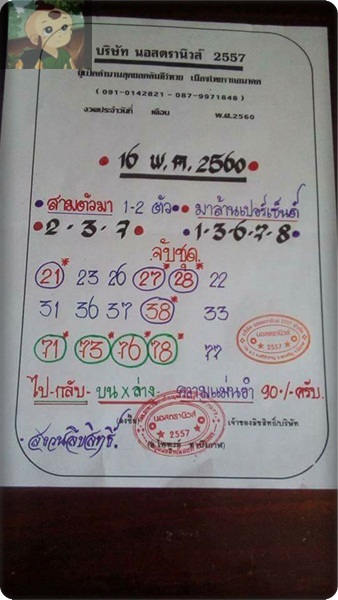 บริษัท นอสตรานิวส์ 2557
(091-0142821 - 087-9971646)
งวดประจำวันที่ เดือน พ.ศ.2560
16 พ.ค.2560
สามตัวมา 1-2 ตัว มาล้านเปอร์เซ็นต์
2-3-7 1-3-6-7-8
จับชุด
21 23 26 27 28 22
31 36 37 38 33
71 73 76 78 77
นอสตรานิวส์
2557
ไป-กลับ-บน x ล่าง- ความแม่นยำ 90%ครับ.
(ลงชื่อ) เจ้าของลิขสิทธิ์/บริษัท
นอสตรานิวส์
2557
สงวนลิขสิทธิ์.